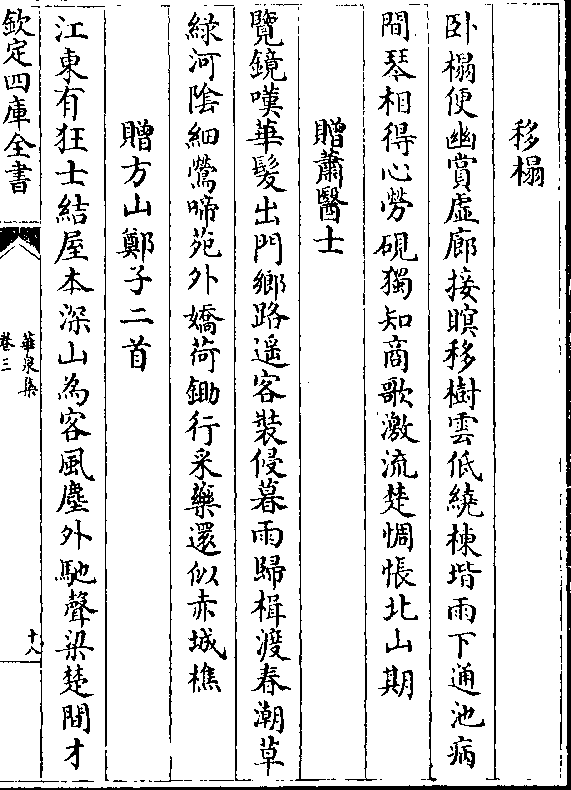 移榻
卧榻便幽賞虚廊接瞑移樹雲低繞棟堦雨下通池病
間琴相得心勞硯獨知商歌激流楚惆悵北山期
贈蕭醫士
覽鏡嘆華髮出門鄉路遥客裝侵暮雨歸楫渡春潮草
緑河隂細鶯啼苑外嬌荷鋤行采藥還似赤城樵
贈方山鄭子二首
江東有狂士結屋本深山為客風塵外馳聲梁楚間才
欽定四庫全書
華泉集
卷三
十八